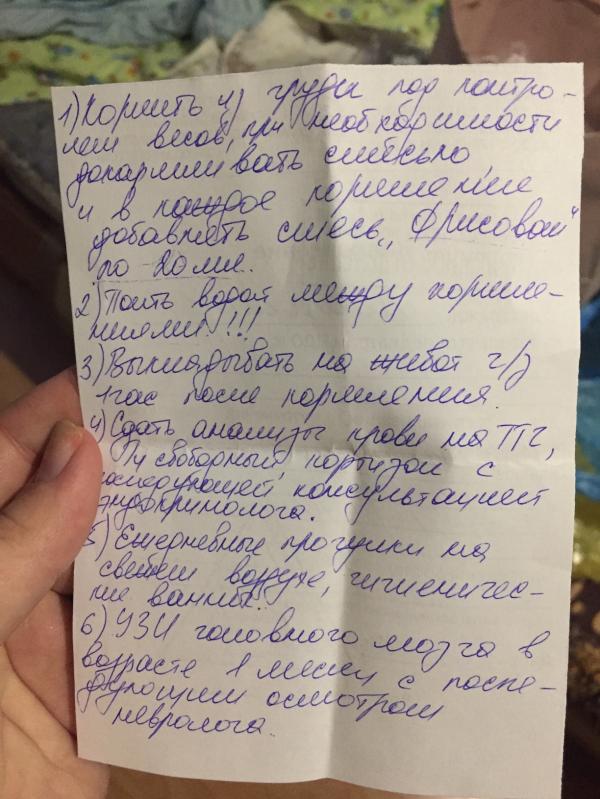 1) Кормить из груди под контро-
лем весов, при необходимости
докармливать смесью
и в каждое кормление
добавлять смесь „Фрисовом"
по 20 мл.
2) Поить водой между кормле-
ниями!!!
3) Выкладывать на живот ч/з
1 час после кормления.
4) Сдать анализы крови на ТТГ,
Т4 свободный, кортизол с
последующей консультацией
эндокринолога.
5) Ежедневные прогулки на
свежем воздухе, гигиеничес-
кие ванны.
6) УЗИ головного мозга в
возрасте 1 месяц с после-
дующим осмотром
невролога.